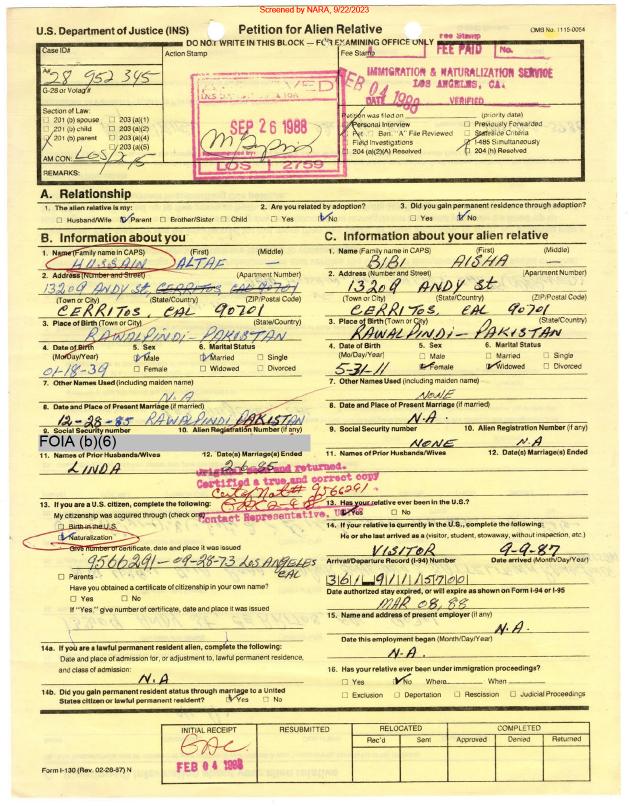 Screened by NARA, 9/22/2023
U.S. Department of Justice (INS) Petition for Alien Relative OMB No. 1115-0054
DO NOT WRITE IN THIS BLOCK — FOR EXAMINING OFFICE ONLY
Case ID# Action Stamp Fee Stamp
Fee Stamp
FEE PAID No.
A# 28 952 345
G-28 or Volag#
IMMIGRATION & NATURALIZATION SERVICE
LOS ANGELES, CA.
FEB 04 1988
DATE VERIFIED
SEP 26 1988
LOS 2759
Section of Law:
201 (b) spouse 203 (a)(1)
201 (b) child 203 (a)(2)
201 (b) parent 203 (a)(4)
203 (a)(5)
AM CON:
REMARKS:
Petition was filed on (priority date)
Personal Interview Previously Forwarded
Pet. Ben. "A" File Reviewed Stateside Criteria
Field Investigations I-485 Simultaneously
204 (a)(2)(A) Resolved 204 (h) Resolved
A. Relationship
1. The alien relative is my: 2. Are you related by adoption? 3. Did you gain permanent residence through adoption?
Husband/Wife Parent Brother/Sister Child Yes No Yes No
B. Information about you
1. Name (Family name in CAPS) (First) (Middle)
HUSSAIN ALTAF —
2. Address (Number and Street) (Apartment Number)
13209 ANDY St. CERRITOS CAL 90701
(Town or City) (State/Country) (ZIP/Postal Code)
CERRITOS, CAL 90701
3. Place of Birth (Town or City) (State/Country)
RAWALPINDI - PAKISTAN
4. Date of Birth 5. Sex 6. Marital Status
(Mo/Day/Year) Male Married Single
01-18-39 Female Widowed Divorced
7. Other Names Used (including maiden name)
N.A
8. Date and Place of Present Marriage (if married)
12-28-85 RAWALPINDI PAKISTAN
9. Social Security number 10. Alien Registration Number (if any)
FOIA (b)(6)
11. Names of Prior Husbands/Wives 12. Date(s) Marriage(s) Ended
LINDA 2-6-85
Original seen and returned.
Certified a true and correct copy
Cert of Nat # 9566291
Contact Representative,
13. If you are a U.S. citizen, complete the following:
My citizenship was acquired through (check one)
Birth in the U.S.
Naturalization
Give number of certificate, date and place it was issued
9566291 - 09-28-73 LOS ANGELES
CAL
Parents
Have you obtained a certificate of citizenship in your own name?
Yes No
If "Yes," give number of certificate, date and place it was issued
14a. If you are a lawful permanent resident alien, complete the following:
Date and place of admission for, or adjustment to, lawful permanent residence,
and class of admission:
N.A
14b. Did you gain permanent resident status through marriage to a United
States citizen or lawful permanent resident? Yes No
C. Information about your alien relative
1. Name (Family name in CAPS) (First) (Middle)
BIBI AISHA —
2. Address (Number and Street) (Apartment Number)
13209 ANDY St
(Town or City) (State/Country) (ZIP/Postal Code)
CERRITOS, CAL 90701
3. Place of Birth (Town or City) (State/Country)
RAWALPINDI - PAKISTAN
4. Date of Birth 5. Sex 6. Marital Status
(Mo/Day/Year) Male Married Single
5-31-11 Female Widowed Divorced
7. Other Names Used (including maiden name)
NONE
8. Date and Place of Present Marriage (if married)
N.A.
9. Social Security number 10. Alien Registration Number (if any)
NONE N.A
11. Names of Prior Husbands/Wives 12. Date(s) Marriage(s) Ended
13. Has your relative ever been in the U.S.?
Yes No
14. If your relative is currently in the U.S., complete the following:
He or she last arrived as a (visitor, student, stowaway, without inspection, etc.)
VISITOR 9-9-87
Arrival/Departure Record (I-94) Number Date arrived (Month/Day/Year)
Date authorized stay expired, or will expire as shown on Form I-94 or I-95
MAR 08, 88
15. Name and address of present employer (if any)
N.A.
Date this employment began (Month/Day/Year)
N.A.
16. Has your relative ever been under immigration proceedings?
Yes No Where When
Exclusion Deportation Rescission Judicial Proceedings
INITIAL RECEIPT RESUBMITTED RELOCATED COMPLETED
Rec'd Sent Approved Denied Returned
FEB 04 1988
Form I-130 (Rev. 02-28-87) N